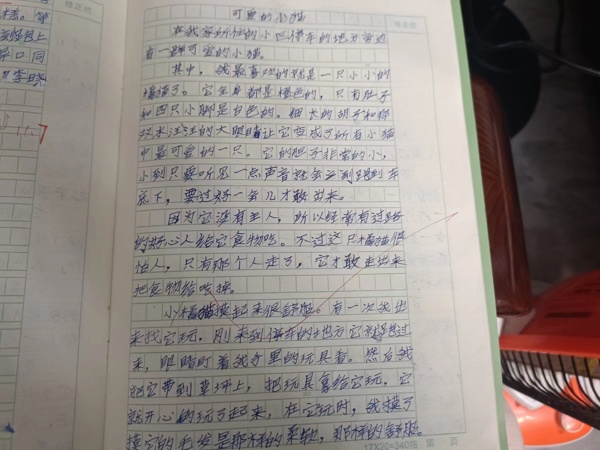 可爱的小猫
在我家所住的小区停车的地方旁边
有一群可爱的小猫。
其中，我最喜欢的就是一只小小的
橘猫了。它全身都是橘色的，只有肚子
和四只小脚是白色的。细长的胡子和那
双水汪汪的大眼睛让它变成了所有小猫
中最可爱的一只。它的胆子非常的小，
小到只要听见一点声音就会立刻跑到车
底下，要过好一会儿才敢出来。
因为它没有主人，所以经常有过路
的好心人给它食物吃。不过这只橘猫很
怕人，只有那个人走了，它才敢走出来
把食物给吃掉
小橘猫摸起来很舒服。有一次我出
来找它玩，刚来到停车的地方它就跑过
来，眼睛盯着我手里的玩具看。然后我
把它带到草坪上，把玩具拿给它玩。它
就开心的玩了起来，在它玩时，我摸了
摸它的毛发是那样的柔软，那样的舒服。
17X20=340格 第 页